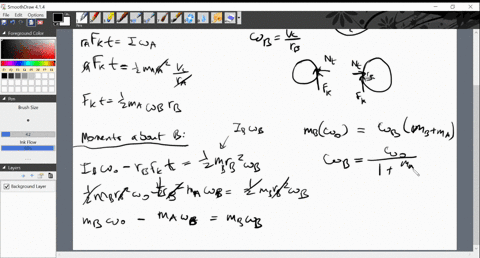 SmoothDraw 4.1.4
Color
Pen
Brush Size
4.2
Ink Flow
87%
Layer
Background Layer
r_A F_k t = I ω_A
r_A F_k t = ½ m_A r_A² v_t/r_A
F_k t = ½ m_A ω_B r_B
ω_B = v_t/r_B
N_t
F_k
N_t
r_B
F_k
Moments about B:
I_B ω_B
I_B ω_0 - r_B F_k t = ½ m_B r_B² ω_B
½ m_B r_B² ω_0 - ½ r_B² m_A ω_B = ½ m_B r_B² ω_B
m_B ω_0 - m_A ω_B = m_B ω_B
m_B(ω_0) = ω_B(m_B+m_A)
ω_B = ω_0/(1 + m_A